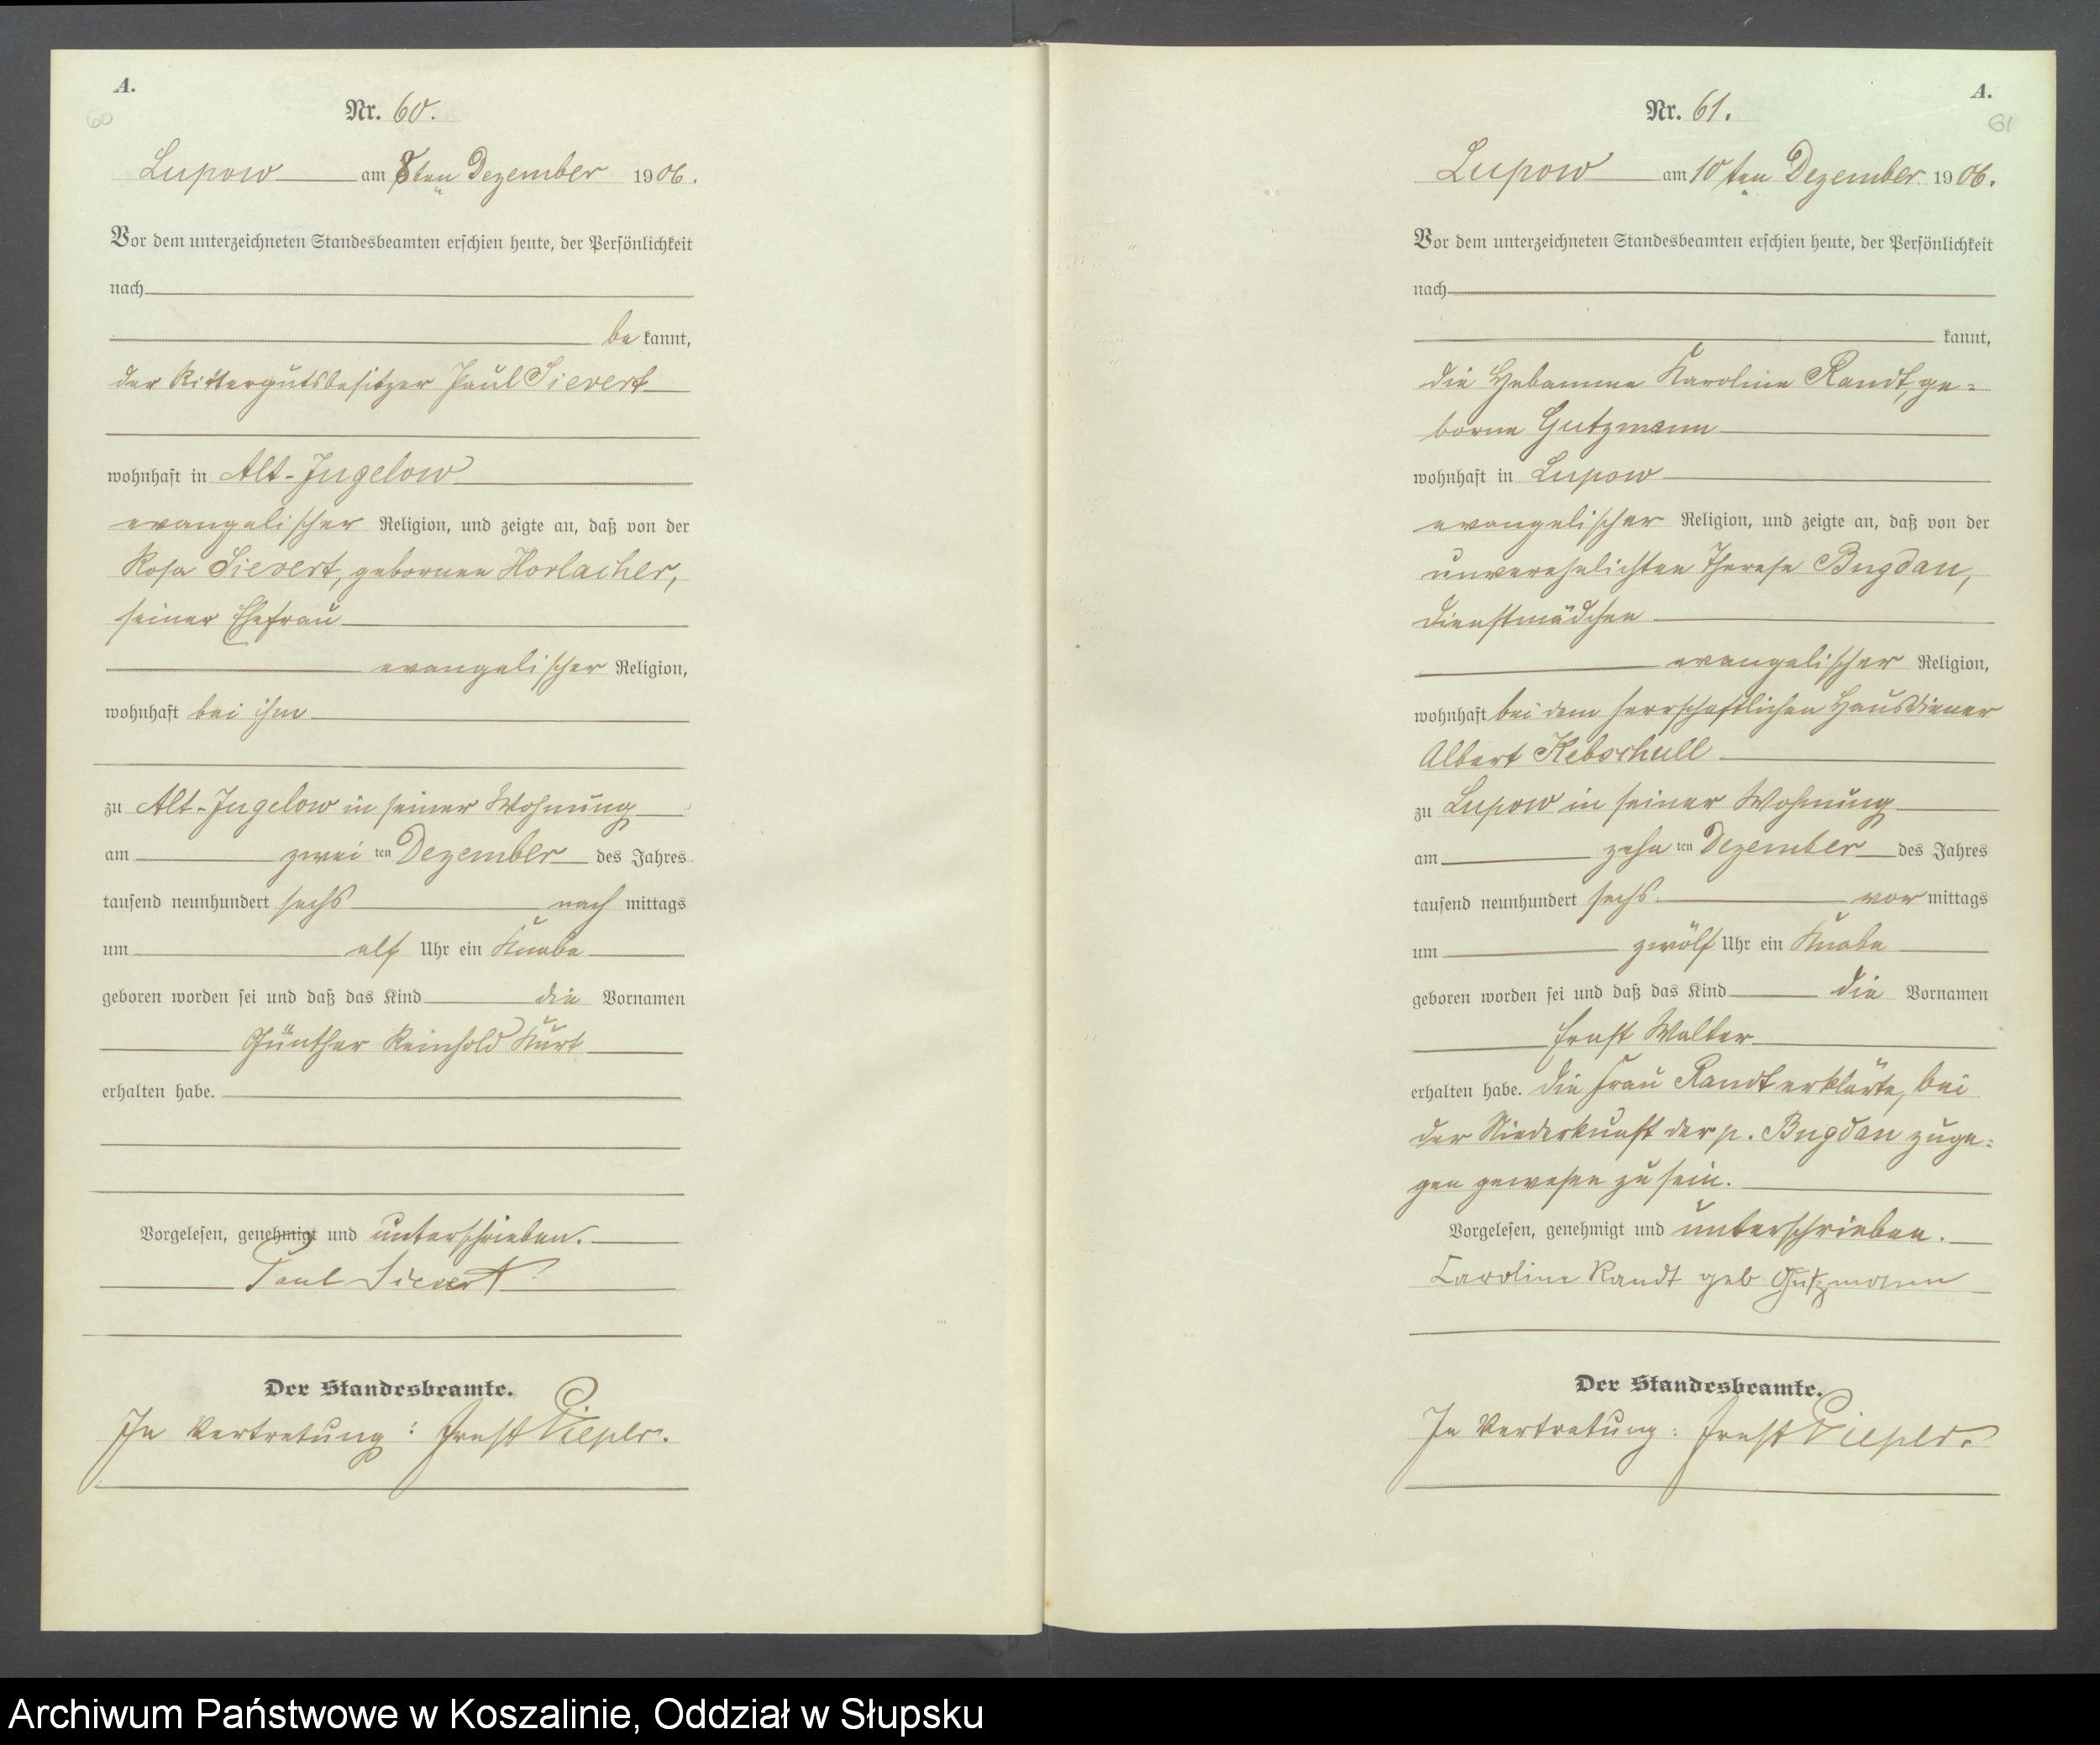 A.
60
Nr. 60.
Lupow am 8ten Dezember 1906.
Vor dem unterzeichneten Standesbeamten erschien heute, der Persönlichkeit
nach
be kannt,
der Rittergutsbesitzer Paul Sievert
wohnhaft in Alt-Jugelow
evangelischer Religion, und zeigte an, daß von der
Rosa Sievert, gebornen Horlacher,
seiner Ehefrau
evangelischer Religion,
wohnhaft bei ihm
zu Alt-Jugelow in seiner Wohnung
am zwei ten Dezember des Jahres
tausend neunhundert sechs nach mittags
um elf Uhr ein Knabe
geboren worden sei und daß das Kind die Vornamen
Günther Reinhold Kurt
erhalten habe.
Vorgelesen, genehmigt und unterschrieben.
Paul Sievert
Der Standesbeamte.
In Vertretung: Ernst Piepkr.
A.
61
Nr. 61.
Lupow am 10ten Dezember 1906.
Vor dem unterzeichneten Standesbeamten erschien heute, der Persönlichkeit
nach
kannt,
die Hebamme Karoline Randt, ge=
borne Gutzmann
wohnhaft in Lupow
evangelischer Religion, und zeigte an, daß von der
unverehelichten Therese Bugdan,
Dienstmädchen
evangelischer Religion,
wohnhaft bei dem herrschaftlichen Hausdiener
Albert Kebschull
zu Lupow in seiner Wohnung
am zehn ten Dezember des Jahres
tausend neunhundert sechs vor mittags
um zwölf Uhr ein Knabe
geboren worden sei und daß das Kind die Vornamen
Ernst Walter
erhalten habe. Die Frau Randt erklärte, bei
der Niederkunft der p. Bugdan zuge=
gen gewesen zu sein.
Vorgelesen, genehmigt und unterschrieben.
Caroline Randt geb Gutzmann
Der Standesbeamte.
In Vertretung: Ernst
Archiwum Państwowe w Koszalinie, Oddział w Słupsku